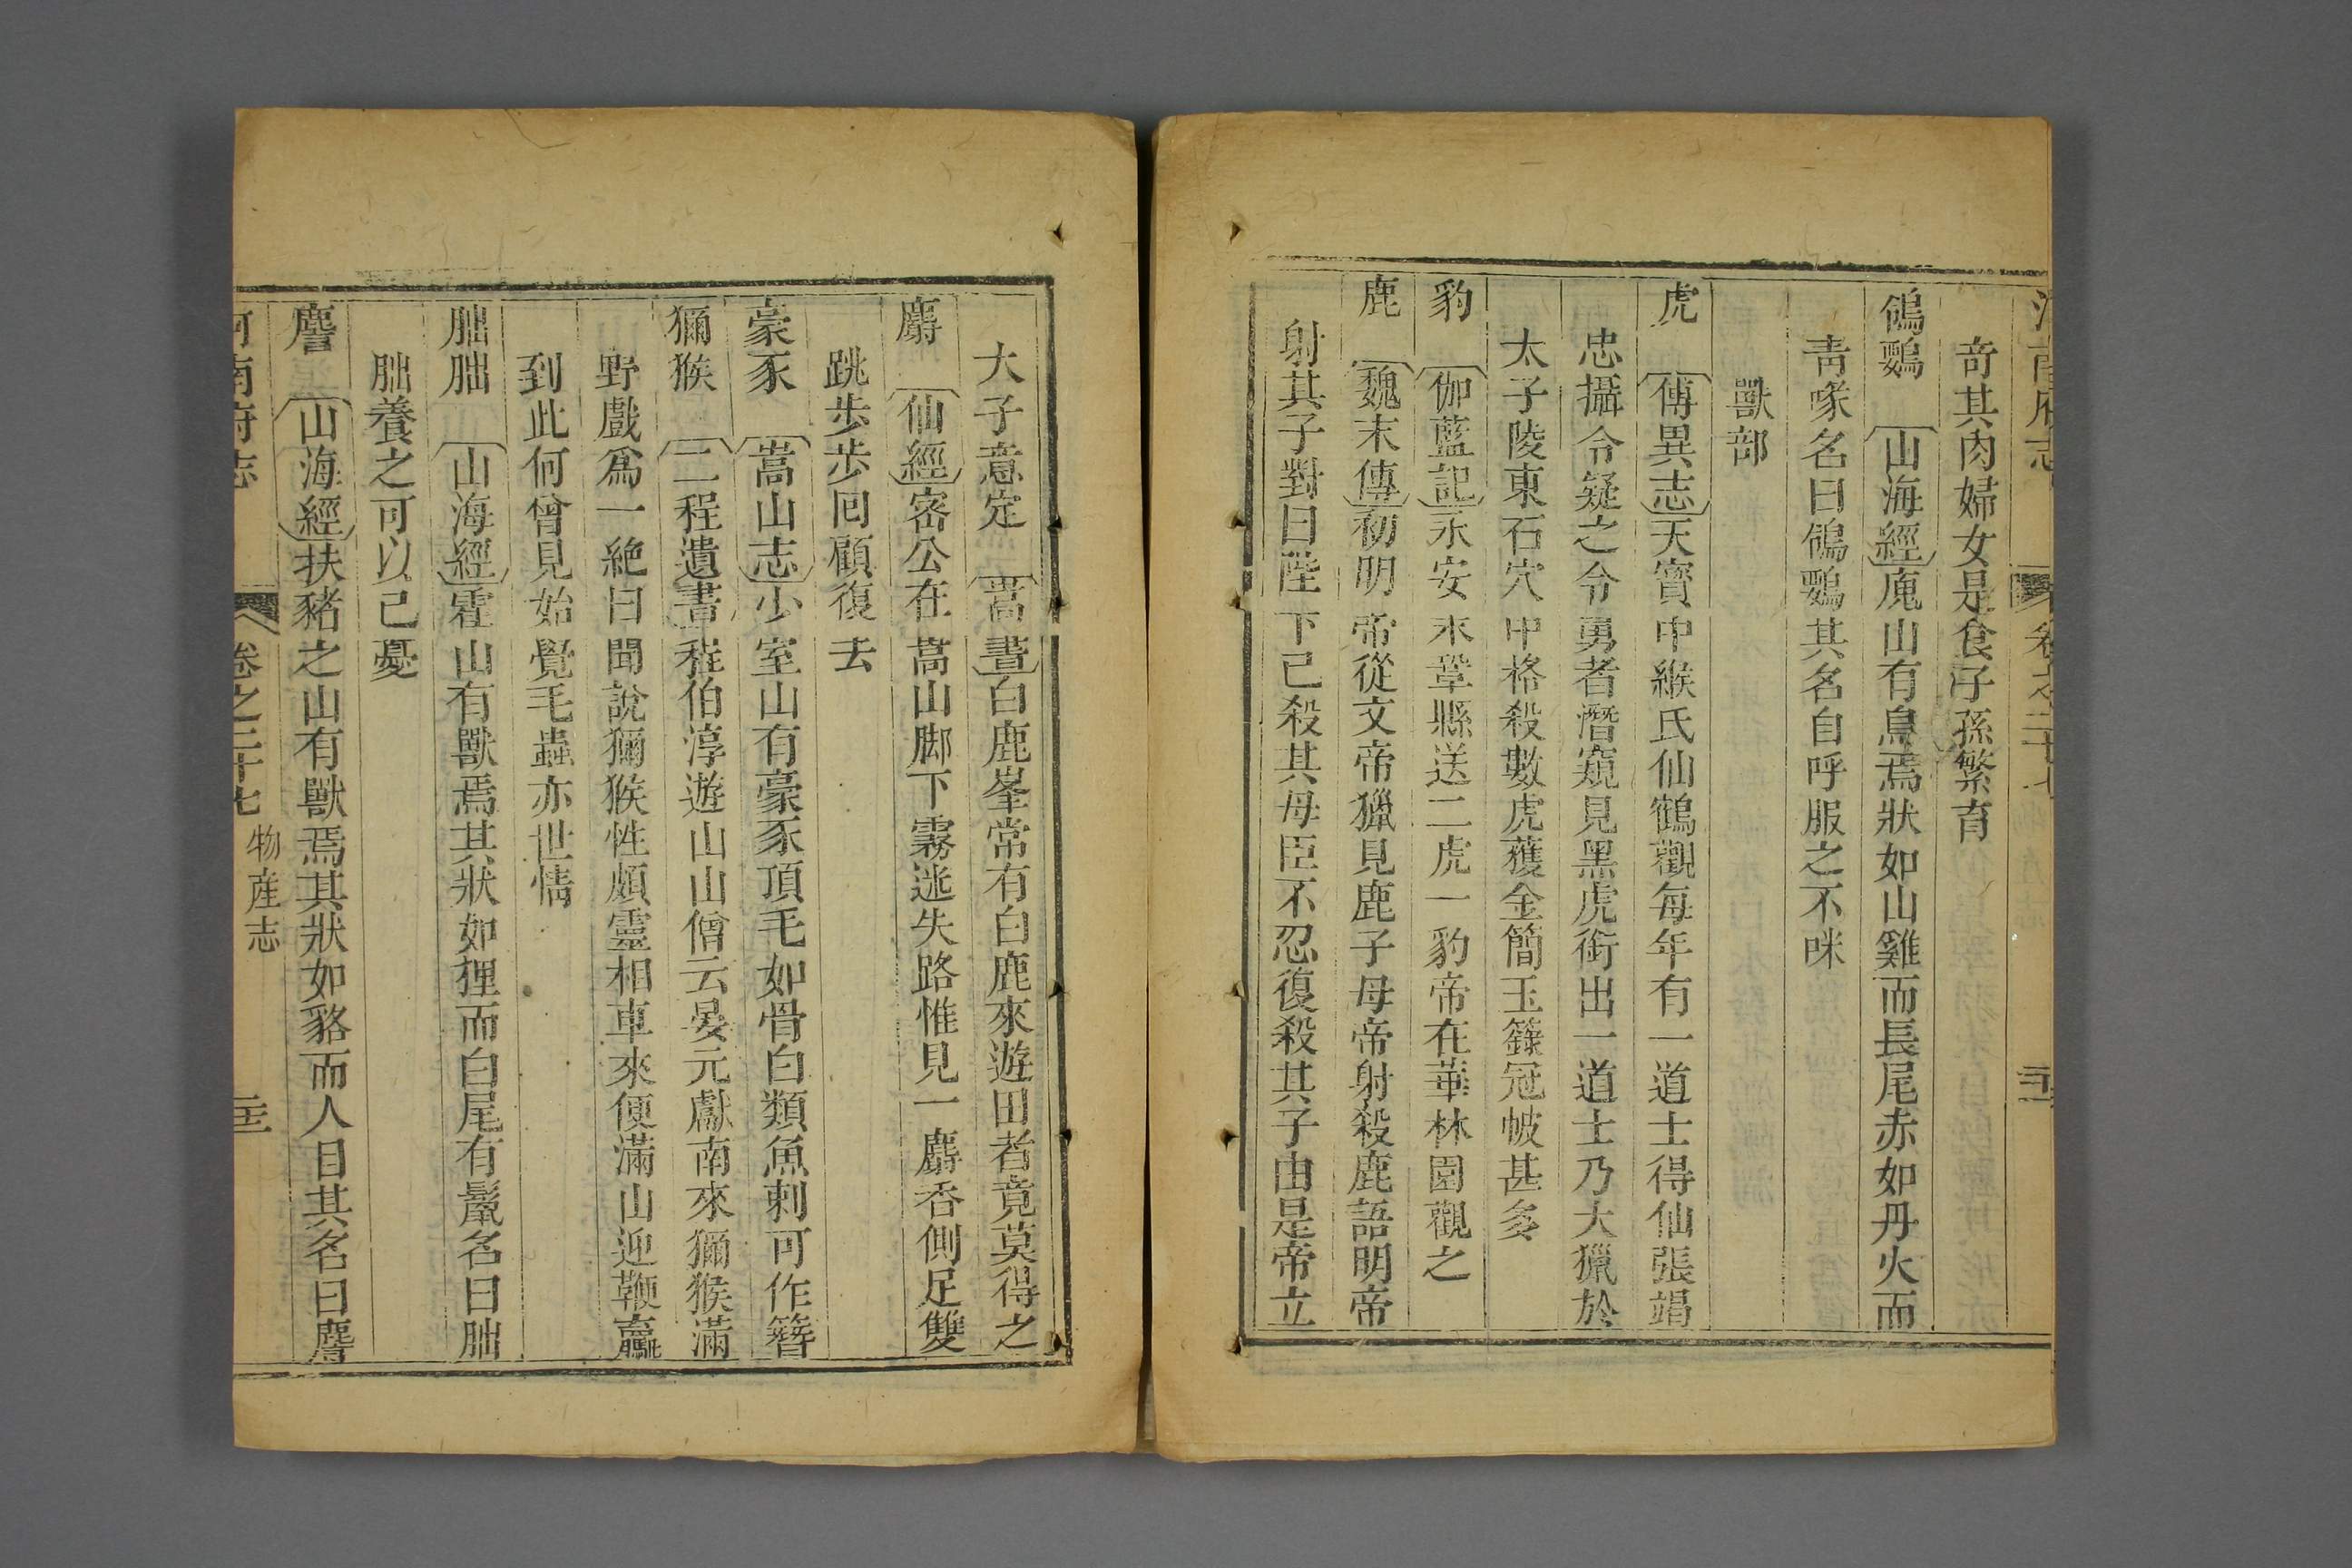 奇其肉婦女是食子孫繁育
鴝鸚 山海經廆山有鳥焉狀如山雞而長尾赤如丹火而
靑喙名曰鴝鸚其名自呼服之不眯
獸部
虎 傳異志天寳中緱氏仙鶴觀每年有一道士得仙張竭
忠攝令疑之令勇者潛窺見黑虎銜出一道士乃大獵於
太子陵東石穴中格殺數虎獲金簡玉籙冠帔甚多
豹 伽藍記永安末鞏縣送二虎一豹帝在華林園觀之
鹿 魏末傳初明帝從文帝獵見鹿子母帝射殺鹿語明帝
射其子對曰陛下已殺其母臣不忍復殺其子由是帝立
大子意定 嵩書白鹿峯常有白鹿來遊田者竟莫得之
麝 仙經密公在嵩山脚下霧迷失路惟見一麝香側足雙
跳步步回顧復去
豪豕 嵩山志少室山有豪豕頂毛如骨白類魚刺可作簪
獼猴 二程遺書程伯淳遊山山僧云晏元獻南來獼猴滿
野戲爲一絶曰聞說獼猴性頗靈相車來便滿山迎鞭羸
到此何曾見始覺毛蟲亦世情
朏朏 山海經霍山有獸焉其狀如狸而白尾有鬣名曰朏
朏養之可以已憂
䴦 山海經扶豬之山有獸焉其狀如貉而人目其名曰䴦
河南府志 卷之二十七 物産志